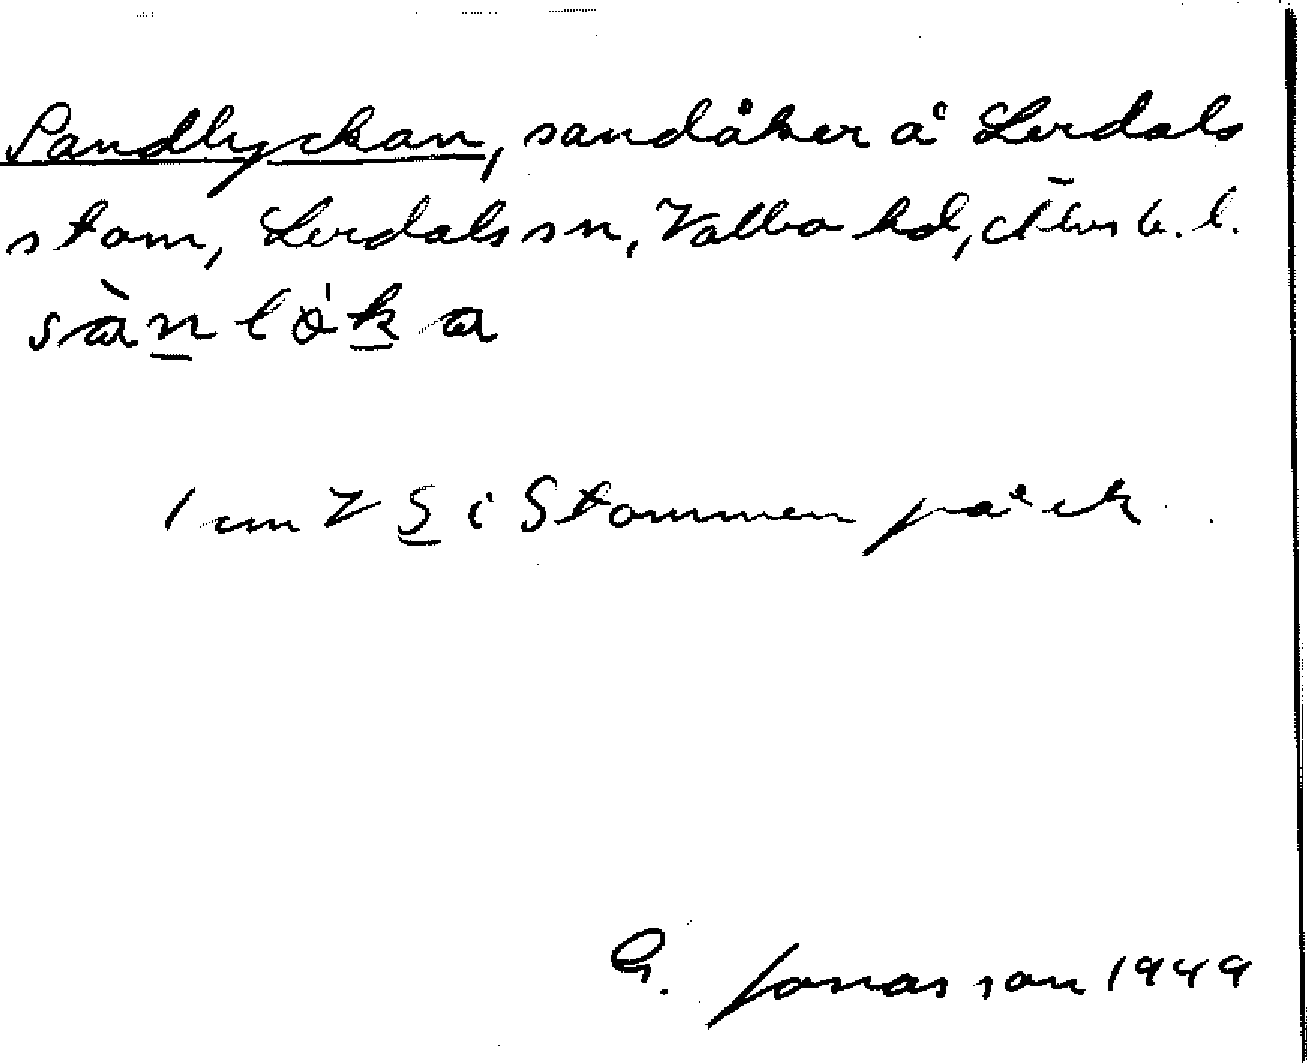 Sandlyckan, sandåker å Lerdals
stom, Lerdals sn, Valbo hd, Älvsb. l.
sàn lø̀ka
1 cm V S i Stommen på ek.
G. Jonasson 1949